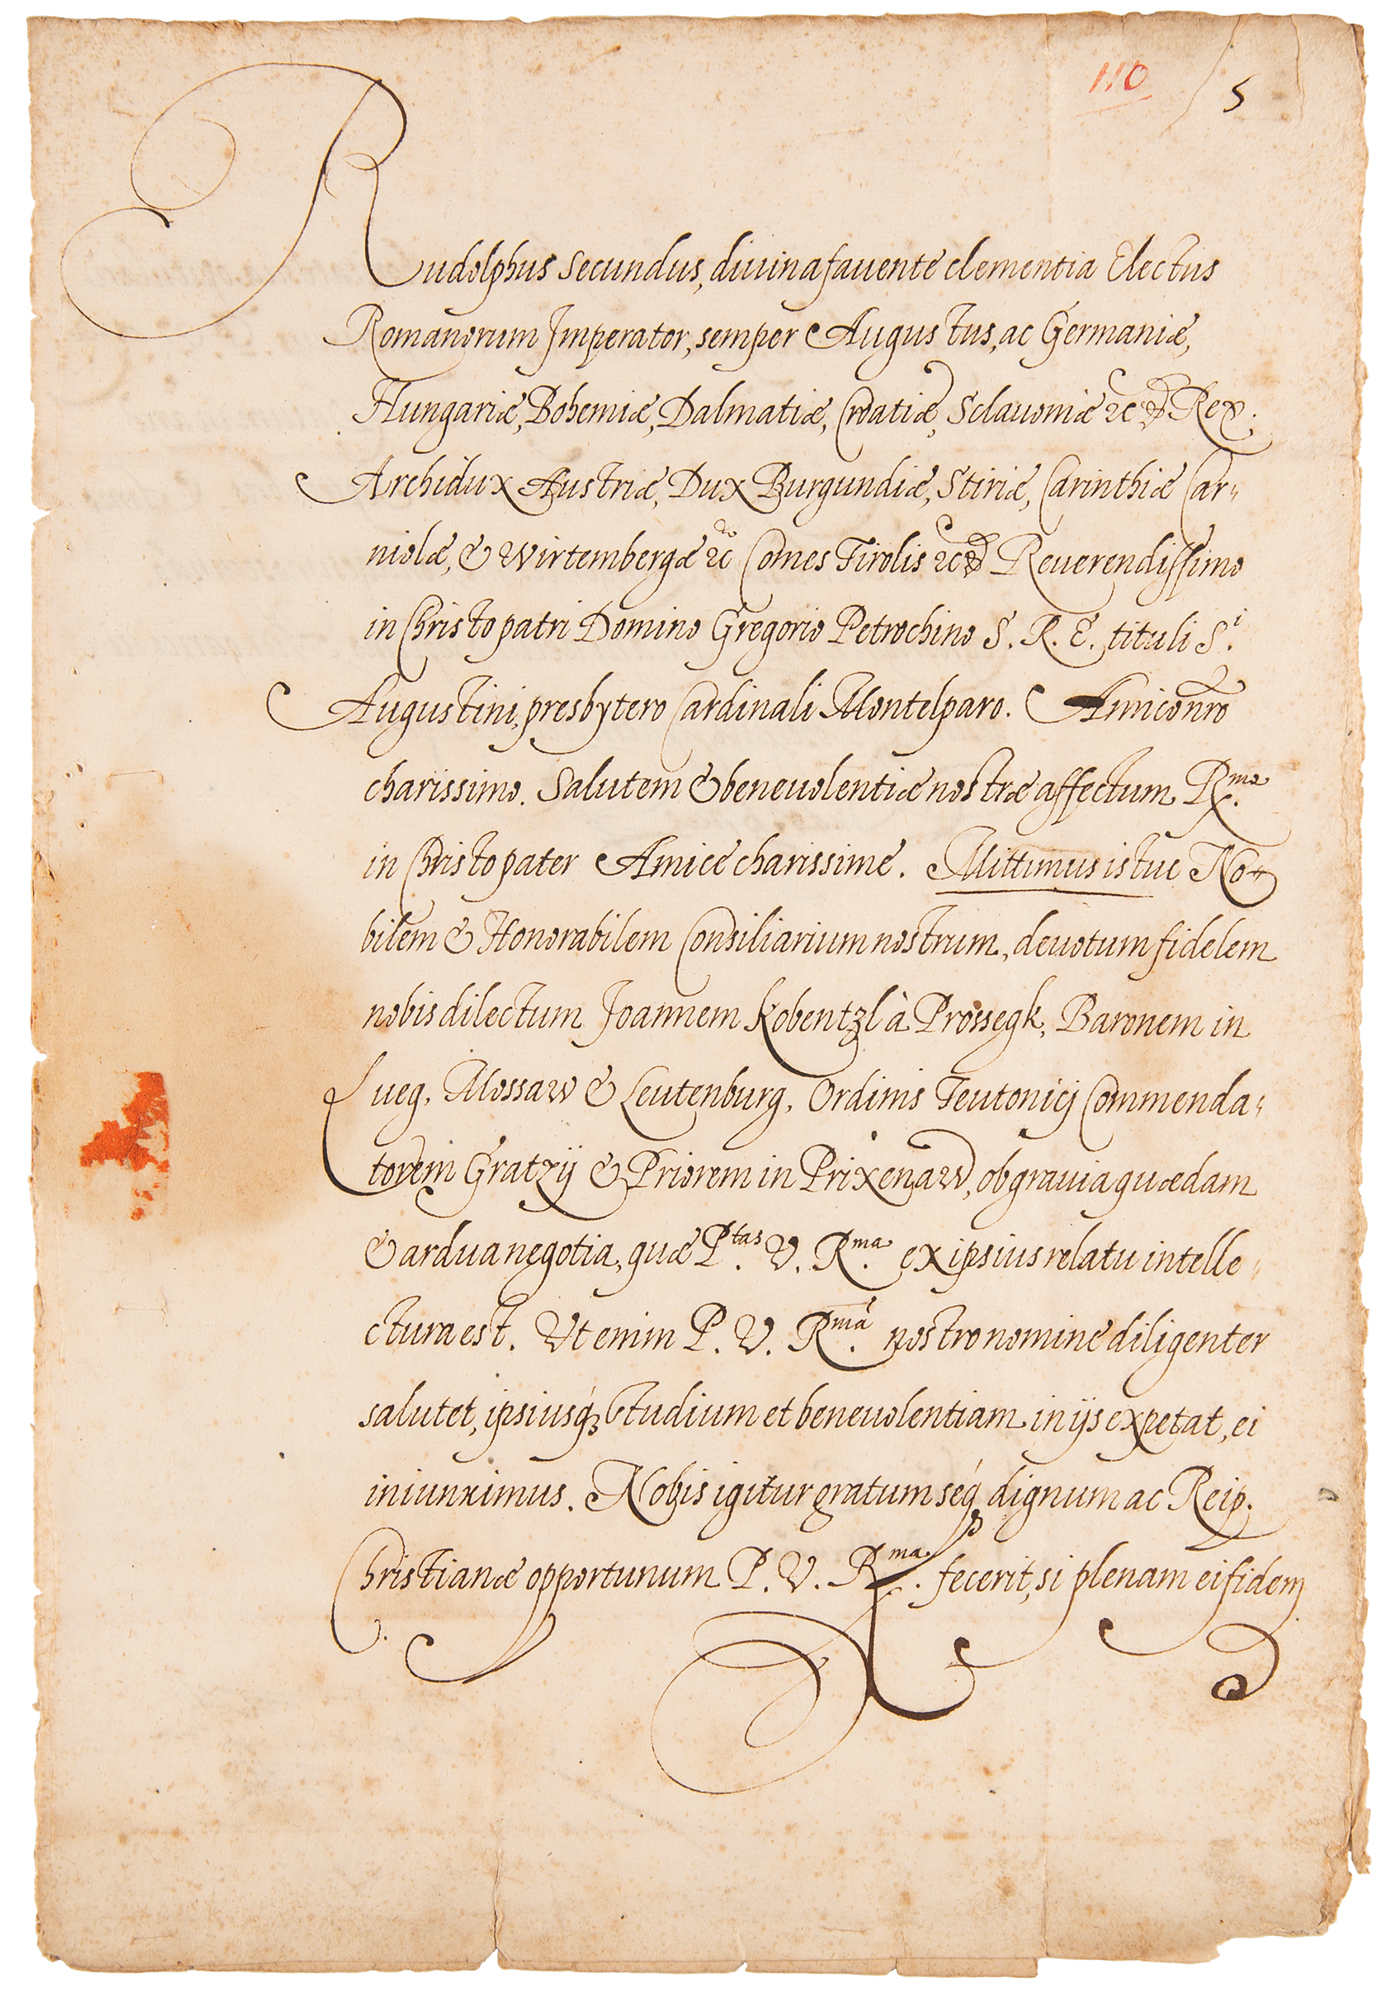 110 5
Rudolphus Secundus, diuina fauente clementia Electus
Romanorum Imperator, semper Augustus, ac Germaniæ,
Hungariæ, Bohemiæ, Dalmatiæ, Croatiæ, Sclauoniæ &c Rex.
Archidux Austriæ, Dux Burgundiæ, Stiriæ, Carinthiæ Car-
niolæ, & Wirtembergæ &c Comes Tirolis &c Reuerendissimo
in Christo patri Domino Gregorio Petrochino S. R. E. tituli S.i
Augustini, presbytero Cardinali Montelparo. Amico nro
charissimo. Salutem & beneuolentiæ nostræ affectum R.mo
in Christo pater Amice charissime. Mittimus istuc No-
bilem & Honorabilem Consiliarium nostrum, deuotum fidelem
nobis dilectum Joannem Kobentzl à Prossegk, Baronem in
Lueg, Mossaw & Leutenburg, Ordinis Teutonicj Commenda-
torem Gratzij & Priorem in Prixenaw, ob grauia quædam
& ardua negotia, quæ P.tas V. R.ma ex ipsius relatu intelle-
ctura est. Vt enim P. V. R.mã nostro nomine diligenter
salutet, ipsiusq́; studium et beneuolentiam in ijs expetat, ei
iniunximus. Nobis igitur gratum seq́ dignum ac Reip.
Christianæ opportunum P. V. R.ma fecerit, si plenam ei fidem